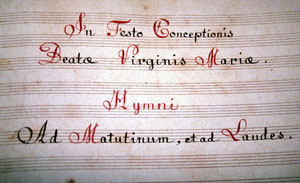 In Festo Conceptionis
Beatæ Virginis Mariæ.
Hymni
Ad Matutinum, et ad Laudes.